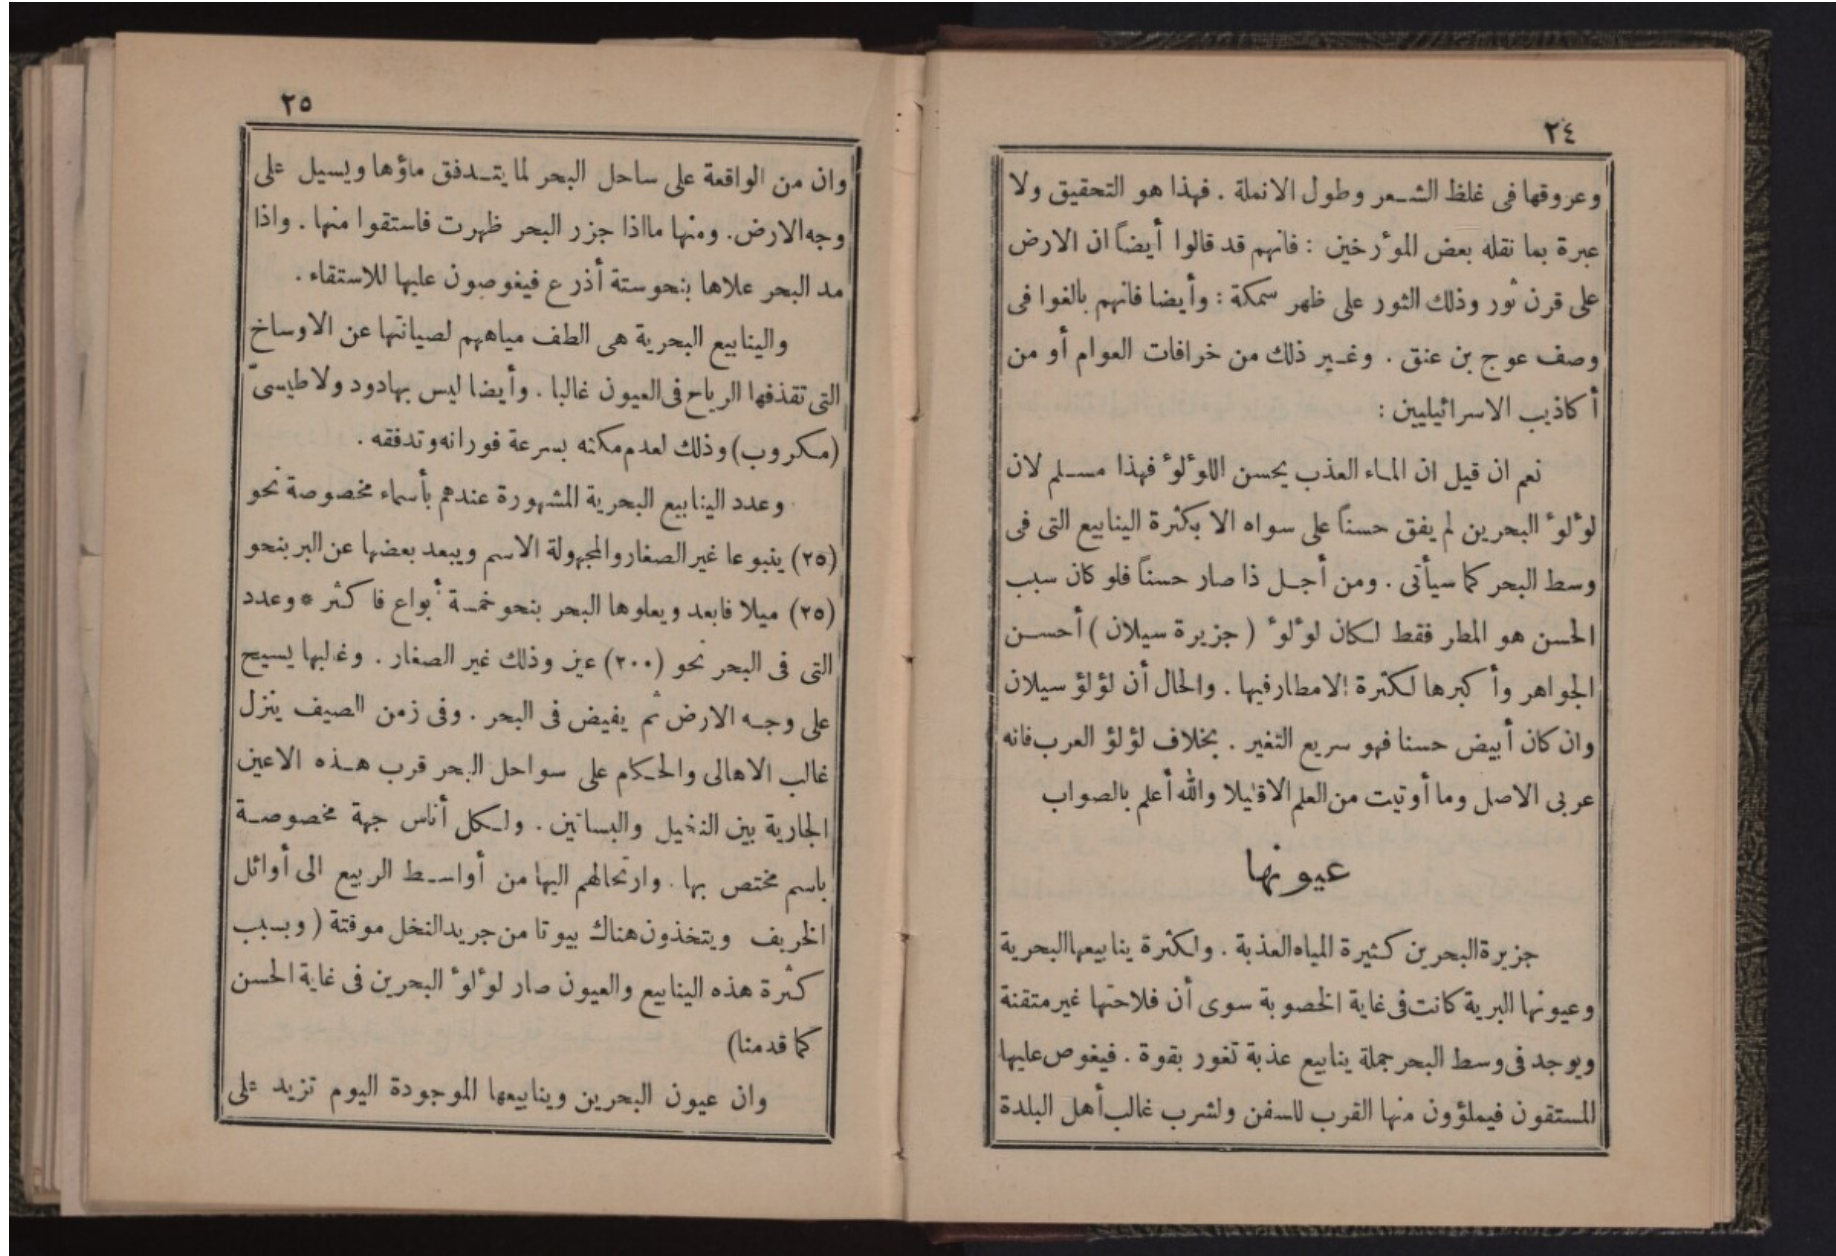 ٢٤
وعروقها فى غلظ الشعر وطول الانملة . فهذا هو التحقيق ولا
عبرة بما نقله بعض المؤرخين : فانهم قد قالوا أيضاً ان الارض
على قرن ثور وذلك الثور على ظهر سمكة : وأيضا فانهم بالغوا فى
وصف عوج بن عنق . وغير ذلك من خرافات العوام أو من
أكاذيب الاسرائيليين :
نعم ان قيل ان الماء العذب يحسن اللؤلؤ فهذا مسلم لان
لؤلؤ البحرين لم يفق حسناً على سواه الا بكثرة الينابيع التى فى
وسط البحر كما سيأتى . ومن أجل ذا صار حسناً فلو كان سبب
الحسن هو المطر فقط لكان لؤلؤ ( جزيرة سيلان ) أحسن
الجواهر وأكبرها لكثرة الامطار فيها . والحال أن لؤلؤ سيلان
وان كان أبيض حسنا فهو سريع التغير . بخلاف لؤلؤ العرب فانه
عربى الاصل وما أوتيت من العلم الا قليلا والله أعلم بالصواب
عيونها
جزيرة البحرين كثيرة المياه العذبة . ولكثرة ينابيعها البحرية
وعيونها البرية كانت فى غاية الخصوبة سوى أن فلاحتها غير متقنة
ويوجد فى وسط البحر جملة ينابيع عذبة تغور بقوة . فيغوص عليها
المستقون فيملؤون منها القرب للسفن ولشرب غالب أهل البلدة
٢٥
وان من الواقعة على ساحل البحر لما يتدفق ماؤها ويسيل على
وجه الارض. ومنها ما اذا جزر البحر ظهرت فاستقوا منها . واذا
مد البحر علاها بنحو ستة أذرع فيغوصون عليها للاستقاء .
والينابيع البحرية هى الطف مياههم لصيانتها عن الاوساخ
التى تقذفها الرياح فى العيون غالبا . وأيضا ليس بها دود ولا طيسىّ
(مكروب) وذلك لعدم مكثه بسرعة فورانه وتدفقه .
وعدد الينابيع البحرية المشهورة عندهم بأسماء مخصوصة نحو
(٢٥) ينبوعا غير الصغار والمجهولة الاسم ويبعد بعضها عن البر بنحو
(٢٥) ميلا فابعد ويعلوها البحر بنحو خمسة أبواع فاكثر * وعدد
التى فى البحر نحو (٢٠٠) عين وذلك غير الصغار . وغالبها يسيح
على وجه الارض ثم يفيض فى البحر . وفى زمن الصيف ينزل
غالب الاهالى والحكام على سواحل البحر قرب هذه الاعين
الجارية بين النخيل والبساتين . ولكل أناس جهة مخصوصة
باسم مختص بها . وارتحالهم اليها من أواسط الربيع الى أوائل
الخريف ويتخذون هناك بيوتا من جريد النخل موقتة ( وبسبب
كثرة هذه الينابيع والعيون صار لؤلؤ البحرين فى غاية الحسن
كما قدمنا)
وان عيون البحرين وينابيعها الموجودة اليوم تزيد على